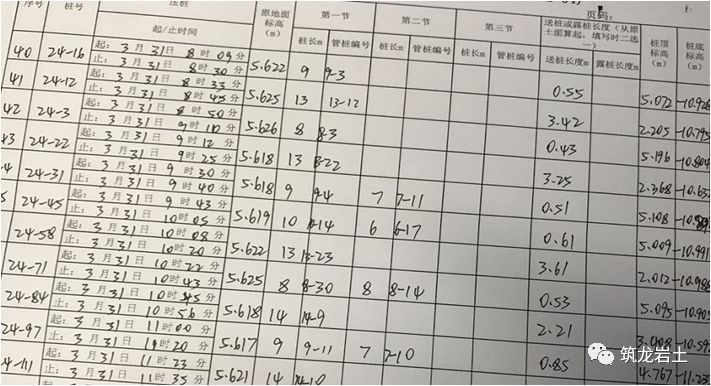 页码:
序号 桩号 压桩 原地面标高(m) 第一节 第二节 第三节 送桩或露桩长度(从原土面算起,填写时二选一) 桩顶标高(m) 桩底标高(m)
起/止时间 桩长m 管桩编号 桩长m 管桩编号 桩长m 管桩编号 送桩长度m 露桩长度m
40 24-16 起: 3月31日8时09分 5.622 9 9-3 0.55 5.072 -10.928
止: 3月31日8时30分
41 24-12 起: 3月31日8时33分 5.625 13 13-12 3.42 2.205 -10.795
止: 3月31日8时45分
42 24-3 起: 3月31日8时50分 5.626 8 8-3 0.43 5.196 -10.804
止: 3月31日9时10分
43 24-22 起: 3月31日9时12分 5.618 13 -22 3.25 2.368 -10.632
止: 3月31日9时25分
4 24-31 起: 3月31日9时30分 5.618 9 9-4 7 7-11 0.51 5.108
止: 3月31日9时40分
5 24-45 起: 3月31日9时43分 5.619 10 -14 6 6-17 0.61 5.009 -10.991
止: 3月31日10时05分
24-58 起: 3月31日10时08分 5.622 13 -23 3.61 2.012 -10.988
止: 3月31日10时20分
24-71 起: 3月31日10时22分 5.625 8 8-30 8 8-14 0.53 5.095 -10.905
止: 3月31日10时43分
24-84 起: 3月31日10时45分 5.618 14 14-9 2.21 -10.592
止: 3月31日10时56分
24-97 起: 3月31日11时00分 5.617 9 9-11 7 7-10 0.85 4.767
止: 3月31日11时20分
4-111 起: 3月31日11时23分 5.621 14 14-10
止: 3月31日11时35分
筑龙岩土